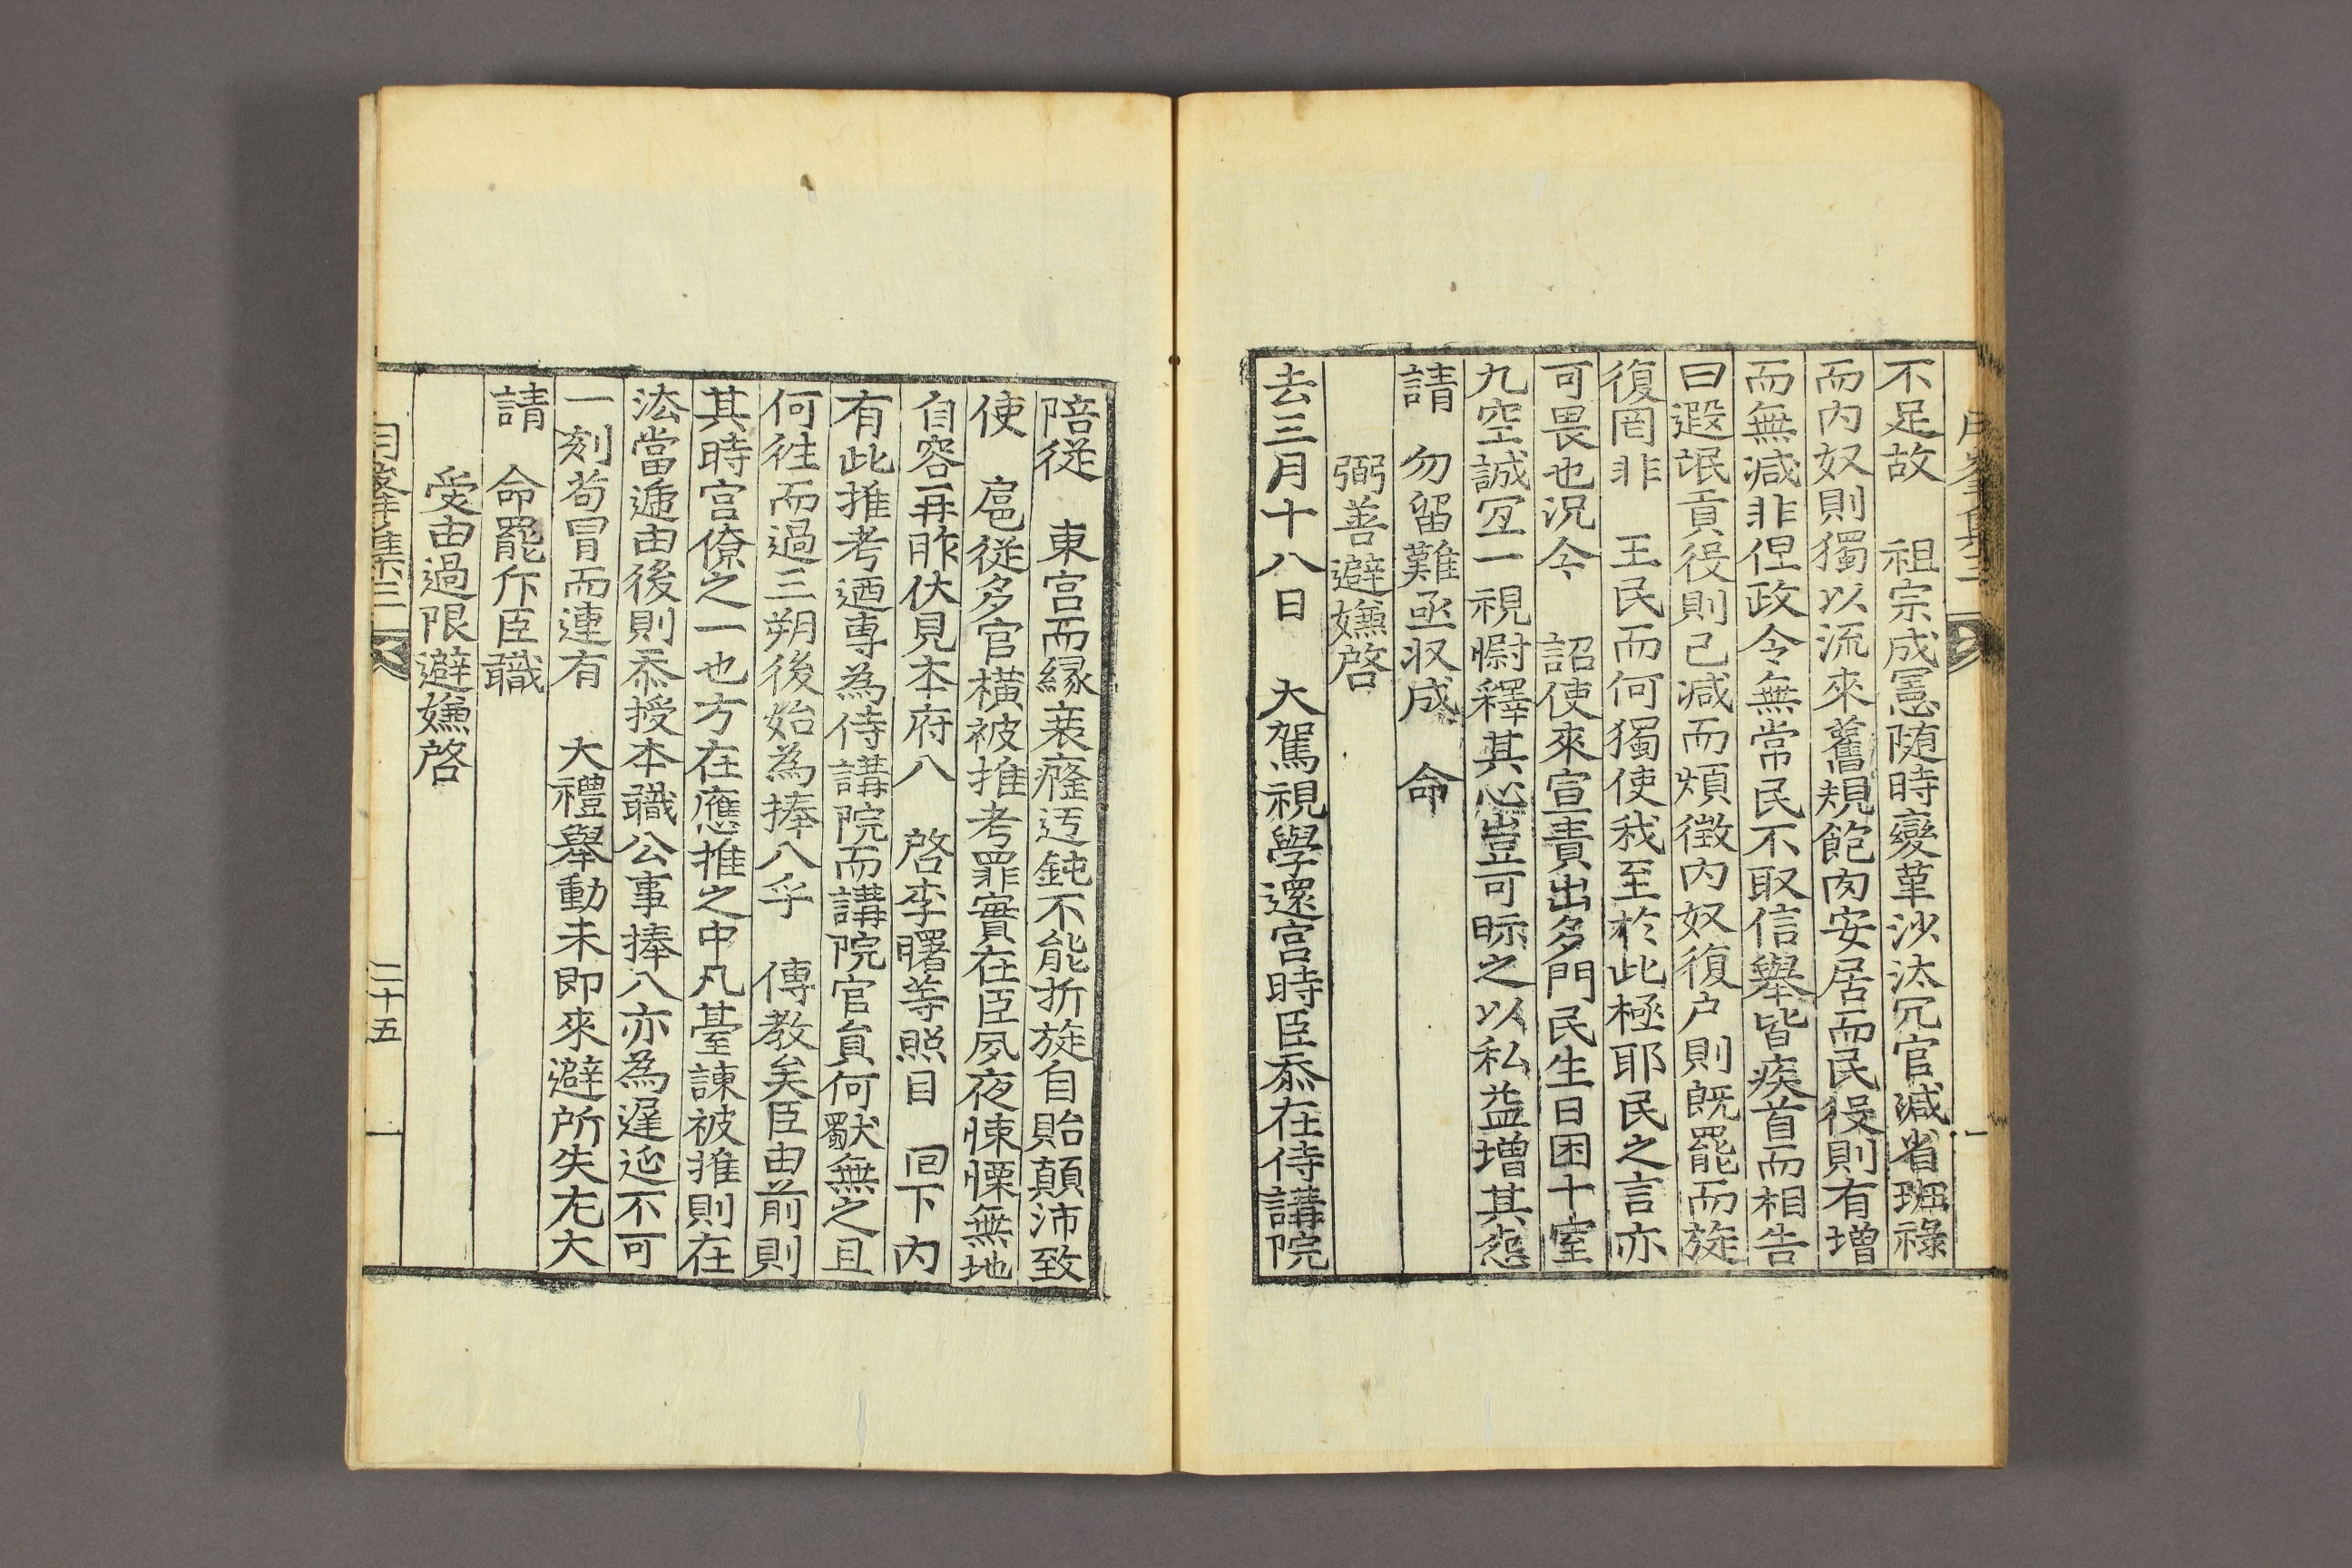 不足故 祖宗成憲随時變革沙汰冗官減省班祿
而內奴則獨以流來舊規飽肉安居而民役則有增
而無減非但政令無常民不取信舉皆疾首而相告
曰遐氓貢役則已減而煩徵內奴復户則旣罷而旋
復罔非 王民而何獨使我至於此極耶民之言亦
可畏也況今 詔使來宣責出多門民生日困十室
九空誠冝一視慰釋其心豈可眎之以私益增其怨
請 勿留難亟収成 命
弼善避嫌啓
去三月十八日 大駕視學還宮時臣忝在侍講院
陪従 東宮而緣衰癃迃鈍不能折旋自貽顛沛致
使 扈從多官橫被推考罪實在臣夙夜悚慄無地
自容再昨伏見本府入 啓李曙等照目 囘下內
有此推考迺專為侍講院而講院官負何獸無之且
何徃而過三朔後始為捧入乎 傳教矣臣由前則
其時宮僚之一也方在應推之中凡臺諫被推則在
法當遞由後則忝授本職公事捧入亦為遅延不可
一刻苟冒而連有 大禮舉動未即來避所失尤大
請 命罷斥臣職
受由過限避嫌啓
月峯集三
二十五